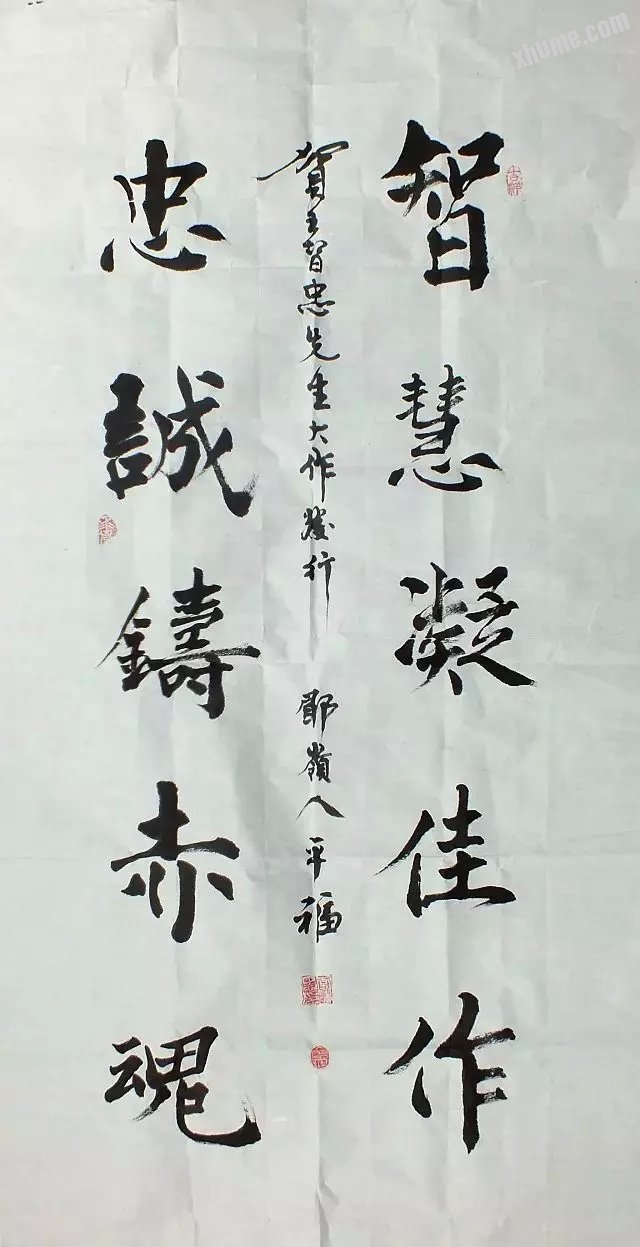 智慧凝佳作
賀王智忠先生大作發行
鄖嶺人平福
忠誠鑄赤魂
xhume.com